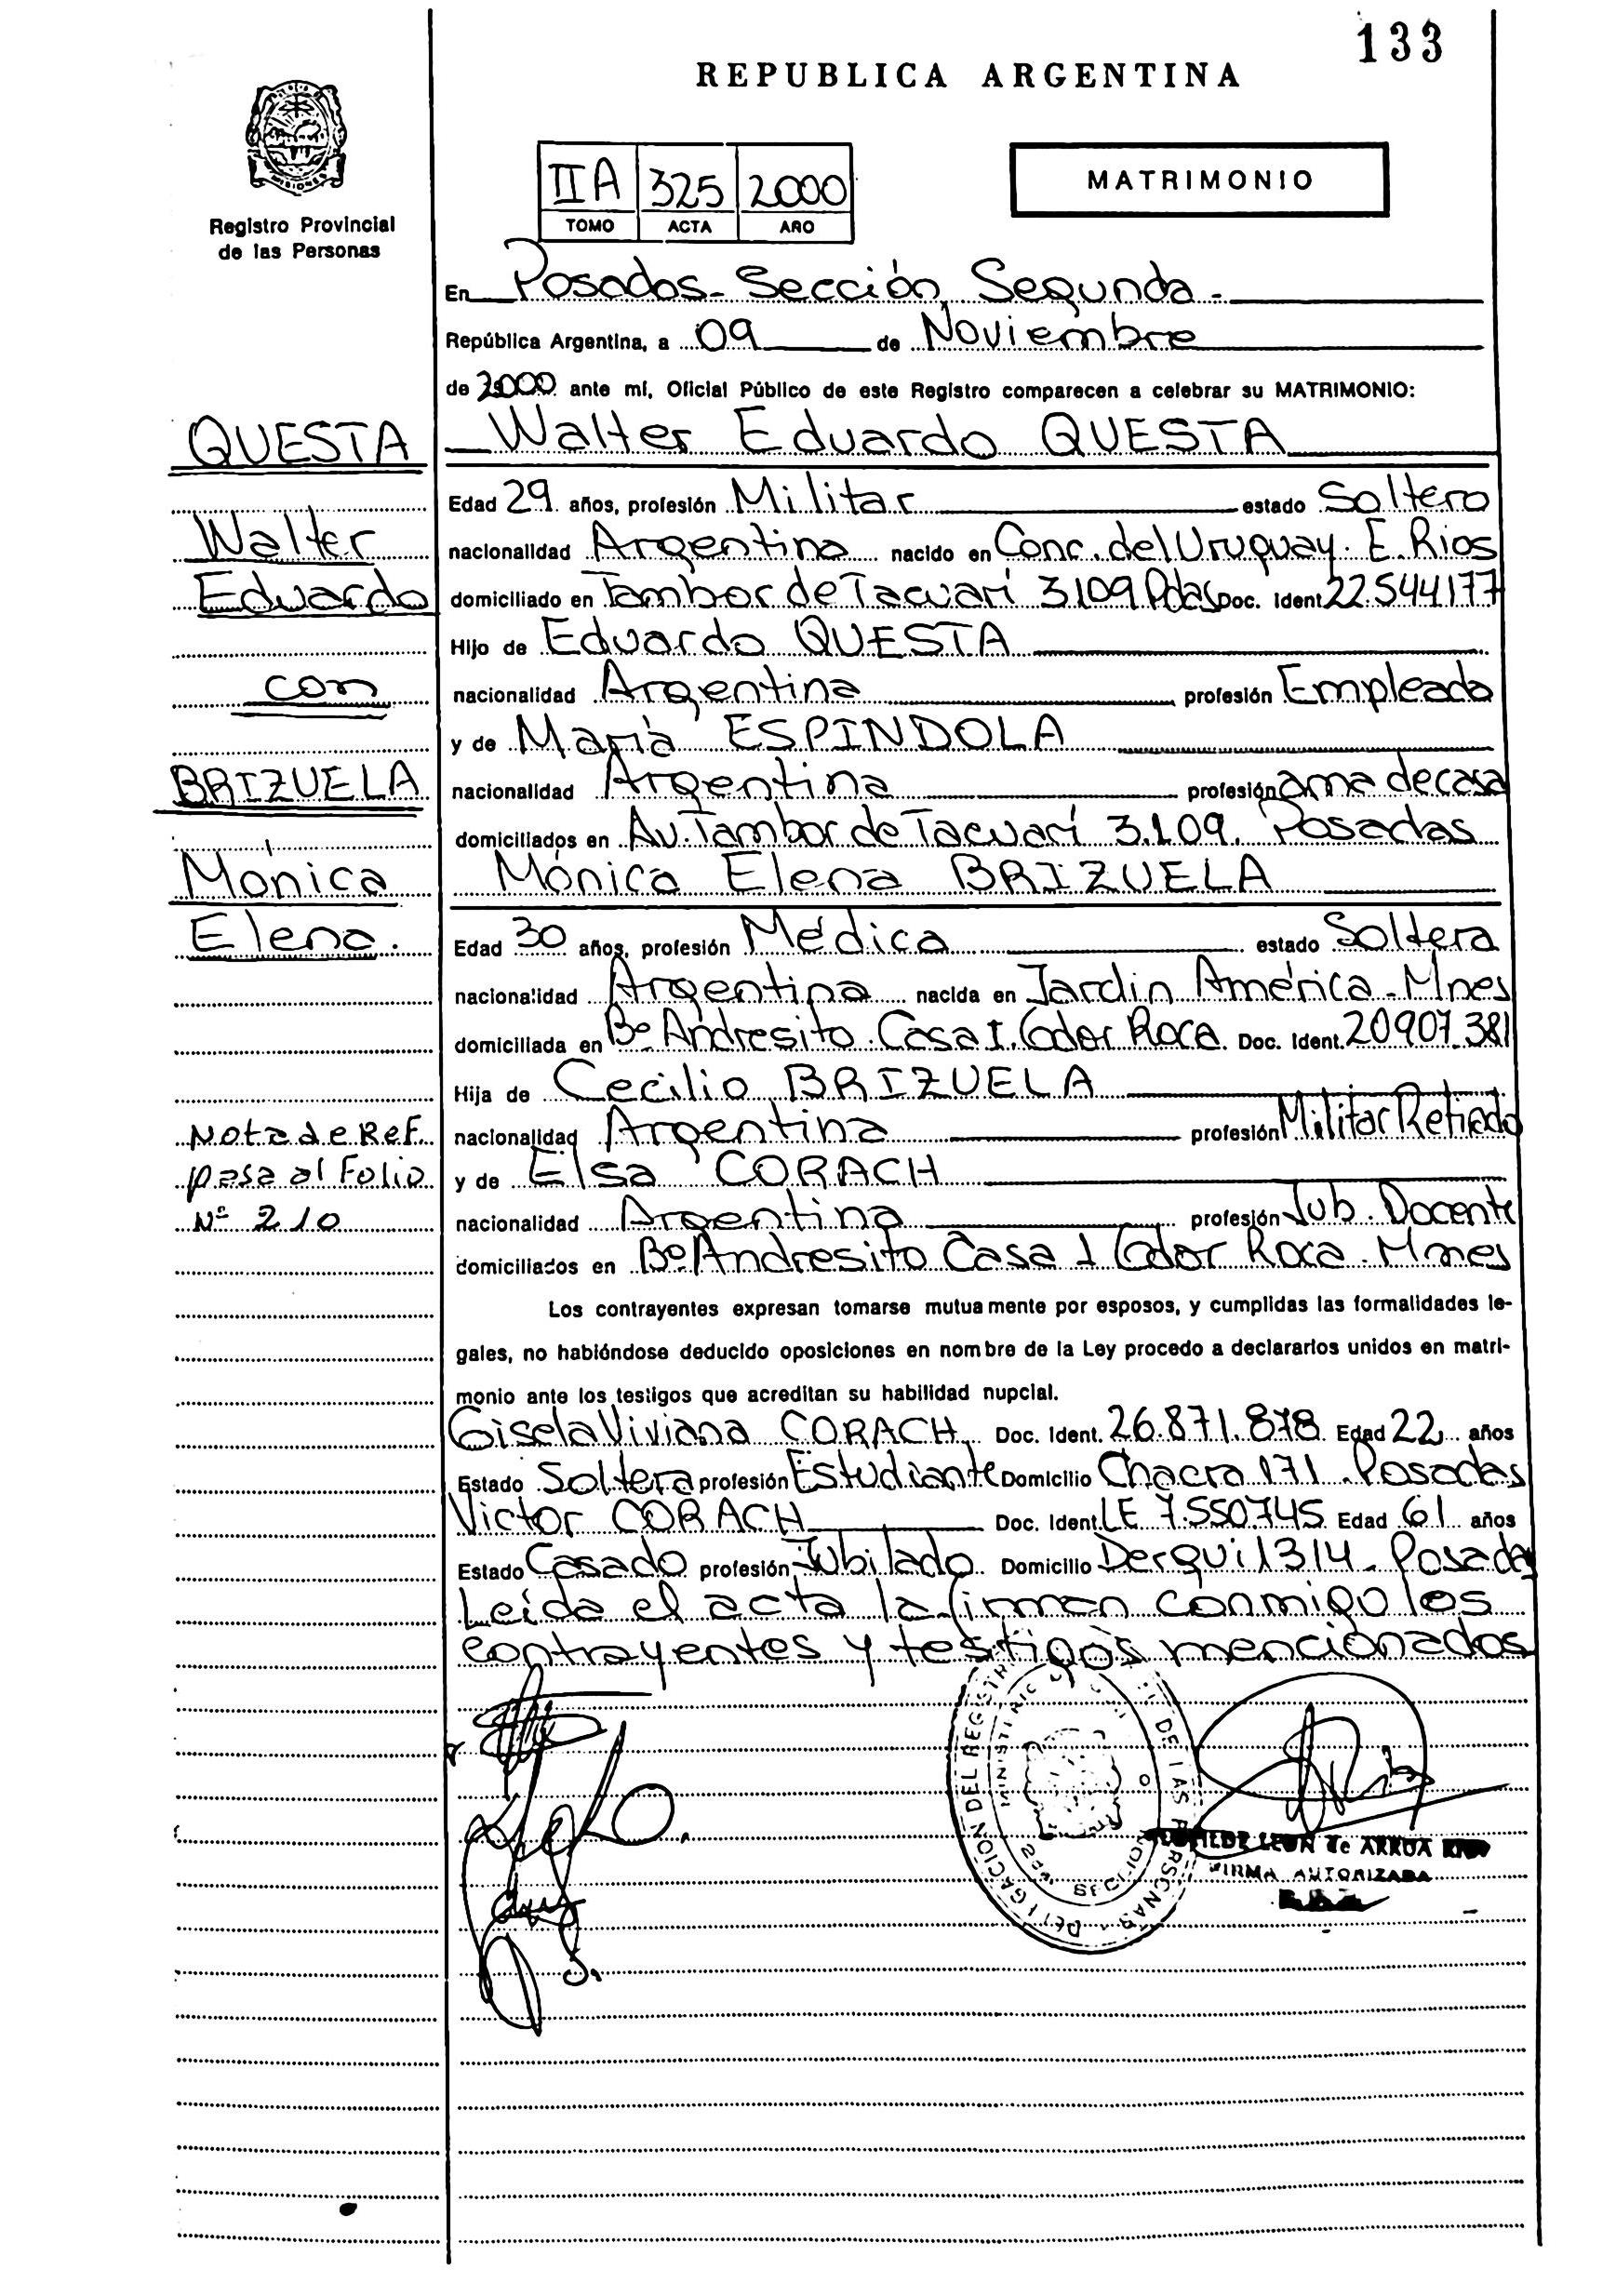 133
REPUBLICA ARGENTINA
MISIONES
Registro Provincial
de las Personas
IIA 325 2000
TOMO ACTA AÑO
MATRIMONIO
En Posadas - Sección Segunda -
República Argentina, a 09 de Noviembre
de 2000 ante mí, Oficial Público de este Registro comparecen a celebrar su MATRIMONIO:
QUESTA
Walter
Eduardo
con
BRIZUELA
Mónica
Elena.
Nota de Ref.
pasa al Folio
Nº 210
Walter Eduardo QUESTA
Edad 29 años, profesión Militar estado Soltero
nacionalidad Argentina nacido en Conc. del Uruguay. E. Rios
domiciliado en Tambor de Tacuarí 3109 Pdas Doc. Ident 22.544177
Hijo de Eduardo QUESTA
nacionalidad Argentina profesión Empleado
y de María ESPINDOLA
nacionalidad Argentina profesión ama de casa
domiciliados en Av. Tambor de Tacuarí 3.109. Posadas
Mónica Elena BRIZUELA
Edad 30 años, profesión Médica estado Soltera
nacionalidad Argentina nacida en Jardin América - Mnes
domiciliada en Bº Andresito. Casa I. Gdor Roca. Doc. Ident. 20907.381
Hija de Cecilio BRIZUELA
nacionalidad Argentina profesión Militar Retirado
y de Elsa CORACH
nacionalidad Argentina profesión Jub. Docente
domiciliados en Bº Andresito Casa 1 Gdor Roca. Mnes
Los contrayentes expresan tomarse mutuamente por esposos, y cumplidas las formalidades le-
gales, no habiéndose deducido oposiciones en nombre de la Ley procedo a declararlos unidos en matri-
monio ante los testigos que acreditan su habilidad nupcial.
Gisela Viviana CORACH Doc. Ident. 26.871.878 Edad 22 años
Estado Soltera profesión Estudiante Domicilio Chacra 171. Posadas
Victor CORACH Doc. Ident. LE 7.550.745 Edad 61 años
Estado Casado profesión Jubilado Domicilio Derqui 1314. Posadas
Leída el acta la firman conmigo los
contrayentes y testigos mencionados
DELEGACION DEL REGISTRO DE LAS PERSONAS
LEON de ARRUA
FIRMA AUTORIZADA